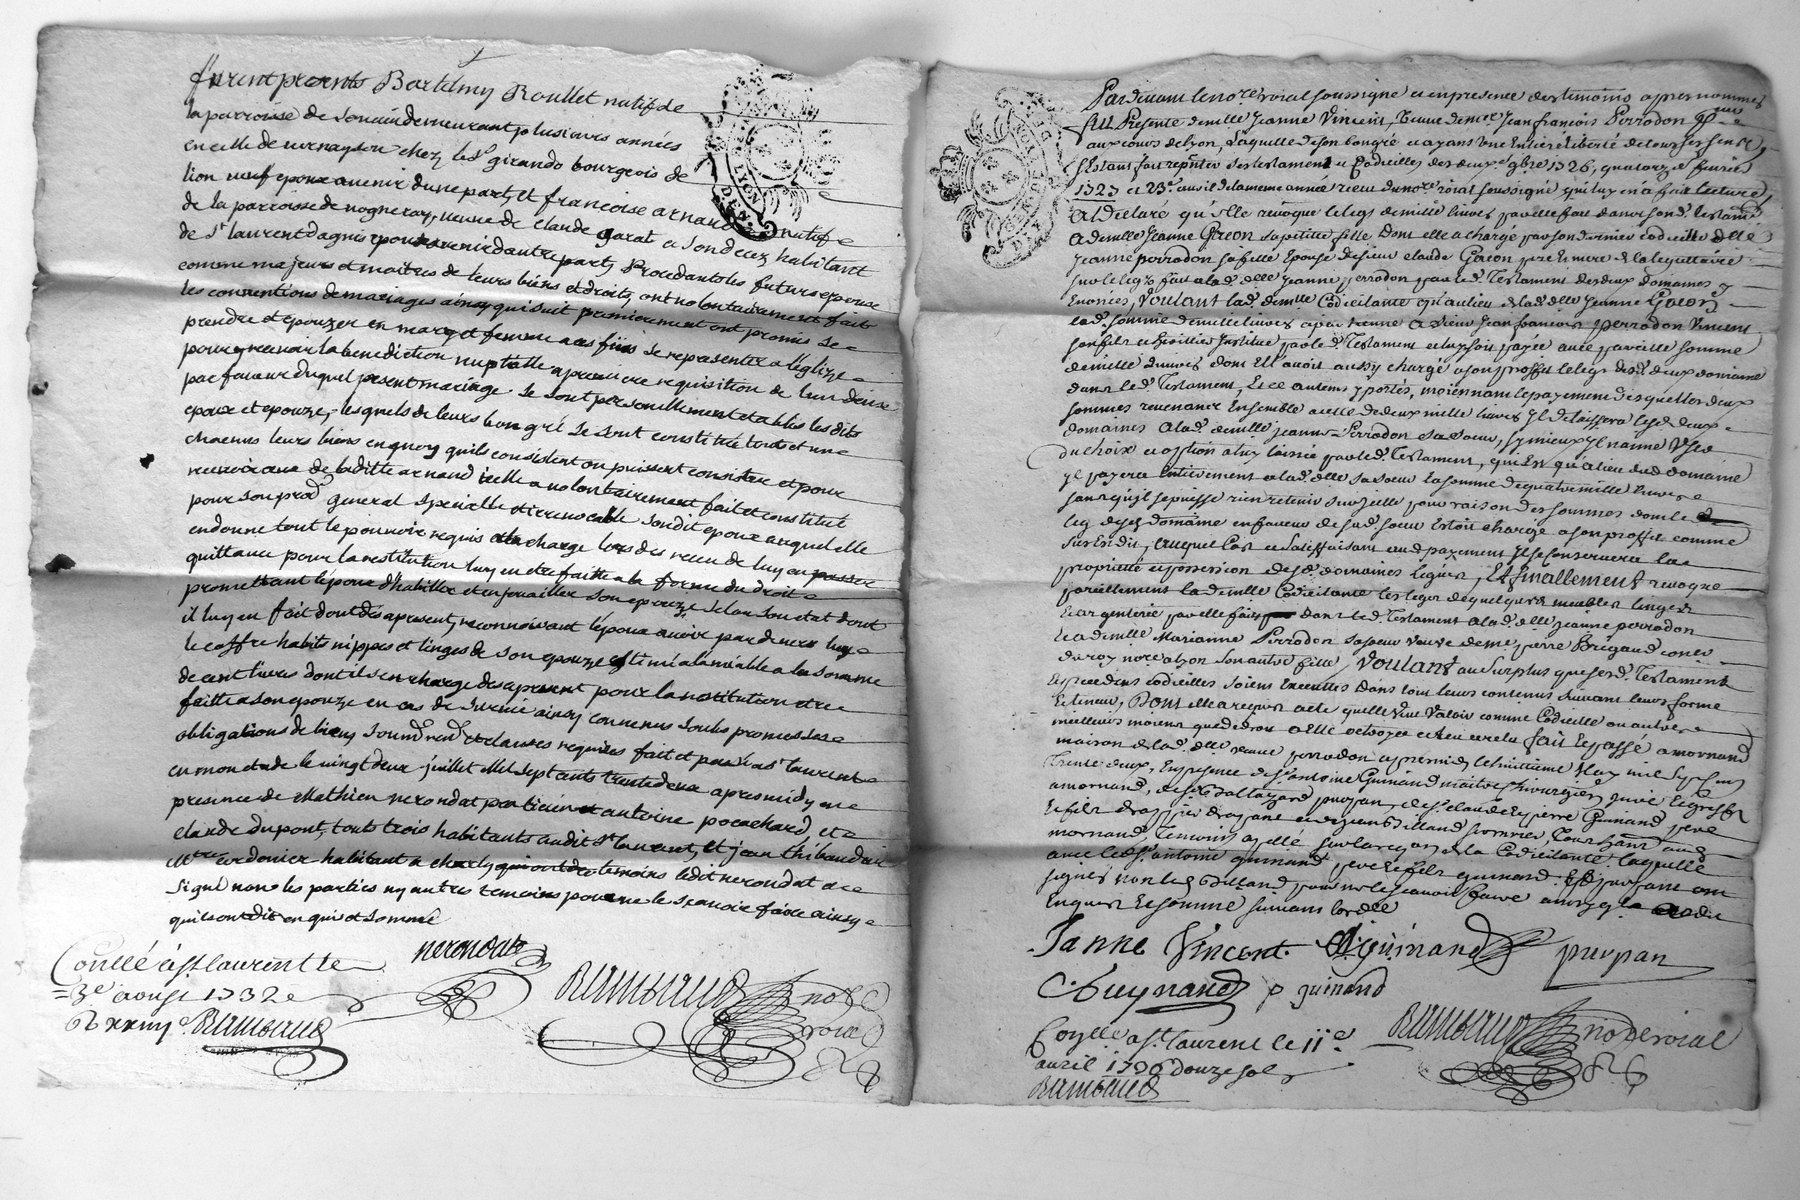 furent presents Bartelmy Roullet natif de
la parroisse de demeurant plusieurs années
en celle de vernayson chez le Sr girando bourgeois de
lion epoux avenir d'une part, et françoise arnaud natif e
de la parroisse de vogneray, veuve de claude garat a son decez habitant
de St laurent dagnis epouze avenir dautre part, Procedants les futurs epouse
comme majeurs et maitres de leurs biens et droits, ont volontairement fait
les conventions de mariages ainsy quisuit premierement ont promis se
prendre et epouzer en mary et femme a ces fins se representer a l'eglize
pour y recevoir la benediction nuptialle a premiere requisition de l'un deux
par faveur duquel present mariage se sont personnellement etablis les dits
epoux et epouze, lesquels de leurs bon gré se sont constitué touts et un
chacuns leurs biens en quoy quils consistent ou puissent consister et pour
de laditte arnaud icelle a volontairement fait et constitué
pour son procr general specialle et irrevocable sondit epoux auquel elle
en donne tout le pouvoir requis a la charge lors des receu de luy en passer
quittance pour la restitution luy en etre faitte a la forme du droit
promettant l'epoux d'habiller et enjouailler son epouze selon son etat dont
il luy en fait dont dès apresent, reconnoissant l'epoux avoir pardevers luy
le coffre habits nippes et linges de son epouze estimé a lamiable a la somme
de cent livres dont ils en charge des apresent pour la restitution etre
faitte a son epouze en cas de survie ainsy convenus soubs promesses
obligations de biens soumon renon et clauses requises fait et passé a St laurent
en mon etude le vingt deux juillet Mil sept cents trente deux apres midy en
presence de Mathieu nerondat praticien et antoine pocachard, et
claude dupont, touts trois habitants audit St laurent, et jean thibaudier
Mtre cordonier habitant a charly temoins ledit nerondat a
signé non les parties ny autres temoins pour ne le sçavoir faire ainsy
quils ont dit enquis et sommé
nerondat
Conllé a St laurent le
3e aoust 1732
Rambaud
Rambaud nore
roial
Pardevant le nore roial soussigné et en presence des temoins apres nommes
fut Presente demlle Jeanne Vincent, veuve de mre Jean françois Perrodon
aux cours de lyon, Laquelle de son bon gré et ayant une Entiere liberté de tous ses sens,
Et s'etant fait repnter ses testament et Codicilles des deux 9bre 1726, quatorze fevrier
1727 et 23e avril de la meme année receu du nore roial soussigné qui luy en a fait lecture
A declaré qu'elle revoque le legs de mille livres par elle fait dans son d. testamt
A demlle Jeanne Goeon sa petite fille dont elle a chargé par son dernier codicille delle
Jeanne perrodon sa fille Epouse de sieur claude Goeon pere et mere de la legattaire
sur le legs fait a lad. delle jeanne perrodon par led. Testament des deux domaines y
Enoncés, Voulant lad. demlle Codicilante qu'au lieu de lad. delle Jeanne Goeon
lad. somme de mille livres apartienne a sieur Jean francois perrodon Vincent
son fils et heritier Institué par led. Testament et luy soit payée avec pareille somme
de mille livres dont Ell'avoit aussy chargé a son proffit le legs desd. deux domaines
dans led. Testament, Et ce au tems y portés, moiennant le payement desquelles deux
sommes revenant Ensemble a celle de deux mille livres Il delaissera lesd. deux
domaines a lad. demlle jeanne Perrodon sa soeur, sy mieux Il n'aime, Uses
du choix et option a luy laissée par led. Testament, qui Est qu'au lieu desd. domaine
Il payera Entierement a lad. delle sa soeur la somme de quatre mille livres
sans qu'Il se puisse rien retenir sur Icelle pour raison des sommes dont le
leg desd. domaine en faveur de sad. soeur Estoit chargé a son proffit comme
sus Est dit, Auquel Cas et satisfaisant aud. payement Il se conservera la
proprieté et possession desd. domaines legués, Et finallement revoque
pareillement la demlle Codicilante les legs de quelques meubles linges
et argenterie par elle faits dans led. Testament a lad. delle jeanne perrodon
Et a demlle Marianne Perrodon sa soeur veuve de mre pierre Brigaud coner
du roy nore a lyon son autre fille, Voulant au surplus que sond. Testament
Et precedens codicilles soient Executtés dans tout leurs contenus suivant leurs forme
Et teneur, Dont elle a requis acte quelle veut valoir comme Codicille ou autre
meilleurs moiens que de droit a elle octroyée fait Et passé a mornand
maison de lad. delle veuve perrodon apres midy le huitieme May mil sept cens
trente deux, En presence de Sr antoine Guinand maitre chirurgien juré Et greffier
a mornand, de puypan, et Sr claude Et pierre Guinand pere
Et fils drappier drapant et Billand sommier, Tous habt aud.
mornand, Temoins apellé sur la requon de la Codicilante laquelle
avec led. Sr antoine guinand, pere et fils guinand, et puypan ont
signés non led. Billand pour ne le sçavoir faire ainsy q. la dit
Enquis Et sommé suivant lordce
Janne Vincent A guinand puypan
C Guynand p guinand
Rambaud nore roial
Conllé a St laurent le 11e
avril 1736 douze sols
Rambaud